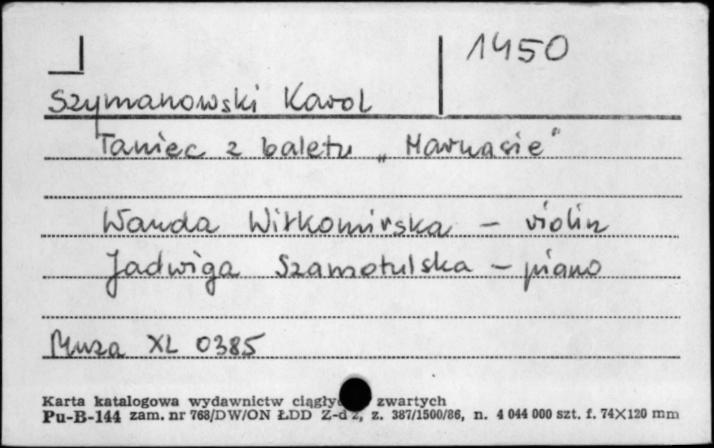 1450
Szymanowski Karol
Taniec z baletu „Harnasie"
Wanda Wiłkomirska – violin
Jadwiga Szamotulska – piano
Muza XL 0385
Karta katalogowa wydawnictw ciągły zwartych
Pu-B-144 zam. nr 768/DW/ON ŁDD Z-d 2, z. 387/1500/86, n. 4 044 000 szt. f. 74×120 mm